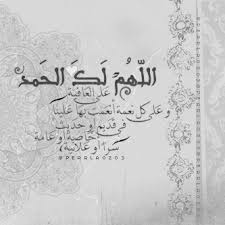 اللَّهُمَّ لَكَ الحَمد
على العافية
و على كل نعمة أنعمت بها علينا
في قديم أو حديث
أو خاصة أو عامة
سراً أو علانية
@PEARLA0203